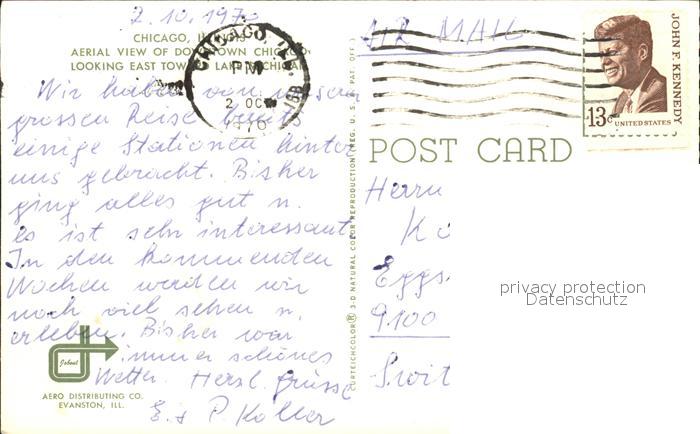 2.10.1970
CHICAGO, ILLINOIS
AERIAL VIEW OF DOWNTOWN CHICAGO
LOOKING EAST TOWARD LAKE MICHIGAN
Wir haben von unserer
grossen Reise bereits
einige Stationen hinter
uns gebracht. Bisher
ging alles gut u.
es ist sehr interessant.
In den kommenden
Wochen werden wir
noch viel sehen u.
erleben. Bisher war
immer schönes
Wetter. Herzl. Grüsse
E. & P. Koller
Jobout
AERO DISTRIBUTING CO.
EVANSTON, ILL.
CURTEICHCOLOR® 3-D NATURAL COLOR REPRODUCTION (REG. U. S. A. PAT. OFF.)
CHICAGO, ILL.
PM
2 OC
1970
AIR MAIL
JOHN F. KENNEDY
13c UNITED STATES
POST CARD
Herrn
Ko
Eggs
9100
Swit
privacy protection
Datenschutz